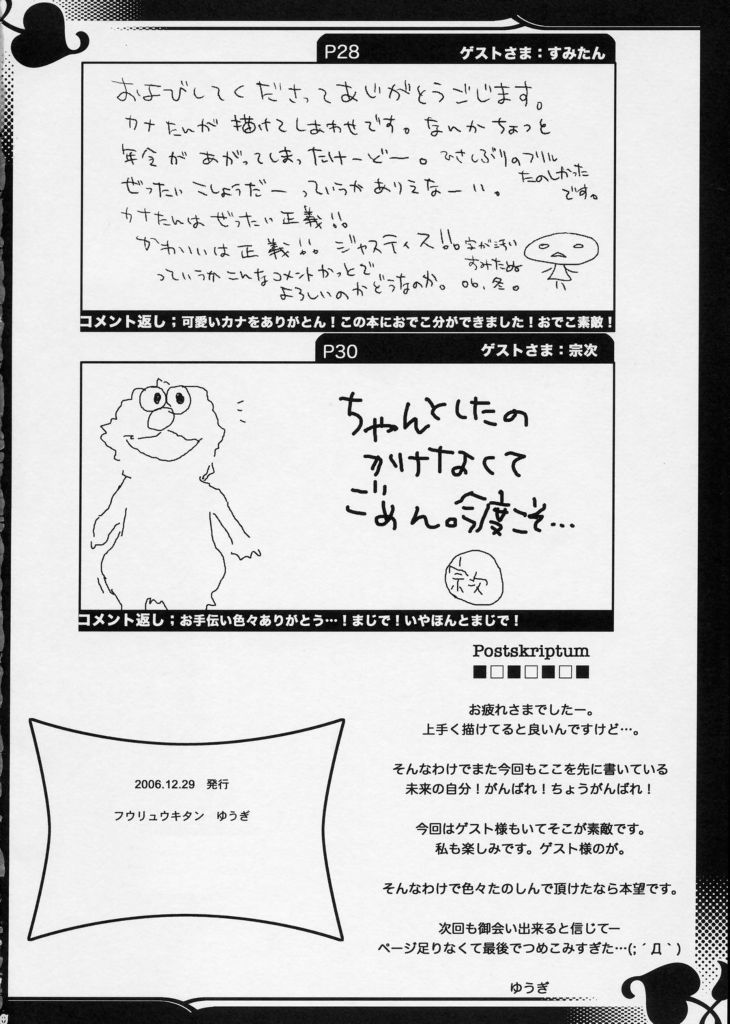 P28 ゲストさま：すみたん
およびしてくださってありがとうごじます。
カナたんが描けてしあわせです。なんかちょっと
年令があがってしまったけーどー。ひさしぶりのフリル
たのしかった
です。
ぜったいこしょうだーっていうかありえなーい。
カナたんはぜったい正義!!
かわいいは正義!! ジャスティス!!
字が汚い
すみたぬ
っていうかこんなコメントかっとで
よろしいのかどうなのか。 06.冬。
コメント返し；可愛いカナをありがとん！この本におでこ分ができました！おでこ素敵！
P30 ゲストさま：宗次
ちゃんとしたの
かけなくて
ごめん。今度こそ…
宗次
コメント返し；お手伝い色々ありがとう…！まじで！いやほんとまじで！
Postskriptum
お疲れさまでしたー。
上手く描けてると良いんですけど…。
そんなわけでまた今回もここを先に書いている
未来の自分！がんばれ！ちょうがんばれ！
今回はゲスト様もいてそこが素敵です。
私も楽しみです。ゲスト様のが。
そんなわけで色々たのしんで頂けたなら本望です。
次回も御会い出来ると信じてー
ページ足りなくて最後でつめこみすぎた…(;´Д｀)
ゆうぎ
2006.12.29 発行
フウリュウキタン ゆうぎ